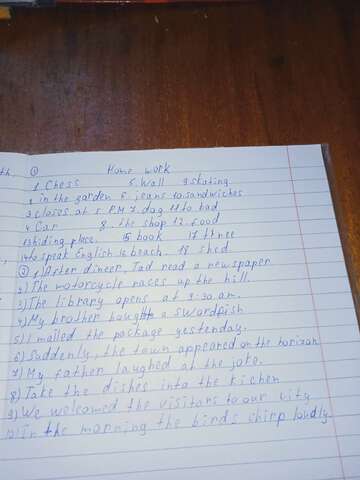 th,
① Home work
1 Chess 5. Wall 9 skating.
2 in the garden 6. jeans 10 sandwiches
3 closes at 5. P.M 7 dog 11 to bad
4 Car 8. the shop 12. food
13 hiding place. 15 book 17 three
14 to speak English 16 beach. 18 shed
② 1) After dineer, Tad read a newspaper
2) The motorcycle races up the hill.
3) The library opens at 9:30 a.m.
4) My brother bought a swordfish
5) I mailed the package yesterday.
6) Suddenly, the town appeared on the horizon
7) My father laughed at the joke.
8) Take the dishes into the kichen
9) We welcomed the visitars to our city
10) In the morning the birds chirp loudly